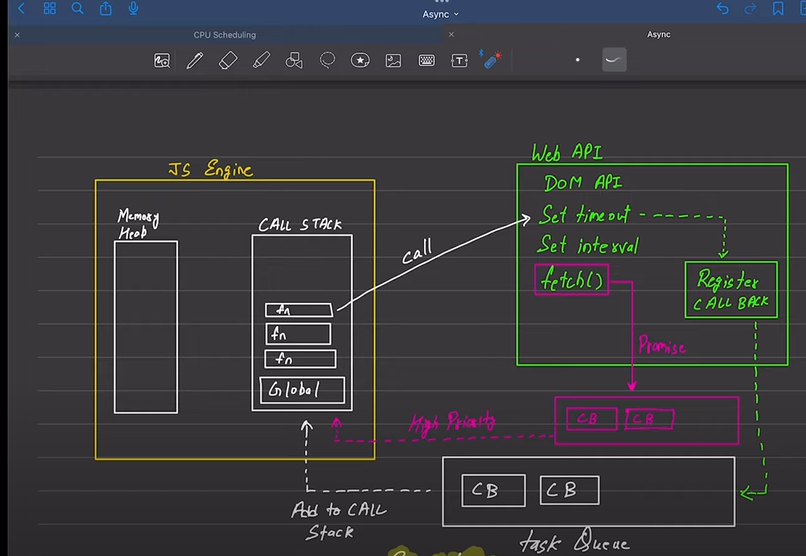 Async
CPU Scheduling
Async
JS Engine
Memory
Heap
CALL STACK
fn
fn
fn
Global
call
Web API
DOM API
Set timeout
Set interval
fetch()
Register
CALL BACK
Promise
CB
CB
High Priority
CB
CB
Add to CALL
Stack
task Queue